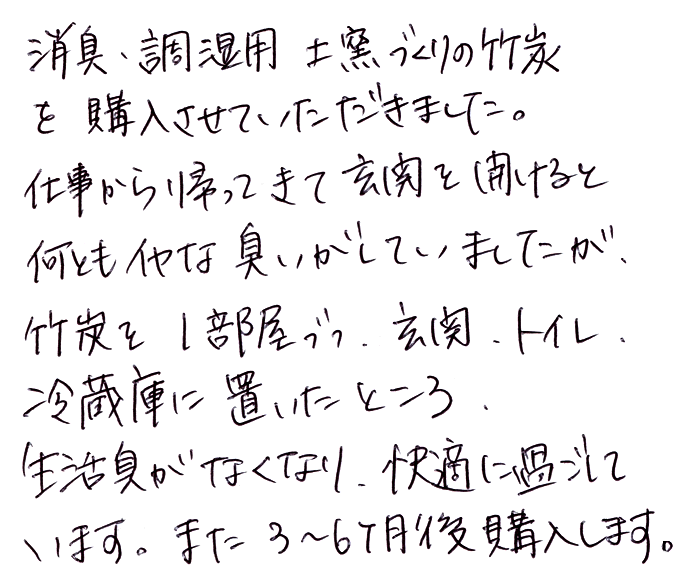 消臭、調湿用 土窯づくりの竹炭
を 購入させていただきました。
仕事から帰ってきて玄関を開けると
何ともイヤな臭いがしていましたが、
竹炭を1部屋づつ、玄関、トイレ、
冷蔵庫に置いたところ、
生活臭がなくなり、快適に過ごして
います。また3〜6ケ月後購入します。